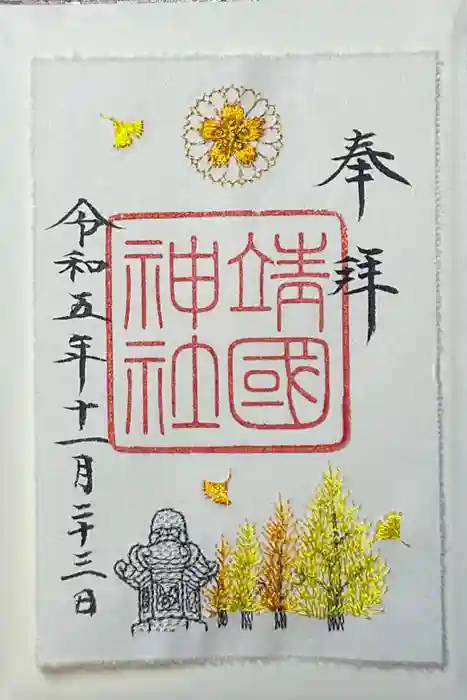 奉拝
靖國
神社
令和五年十一月二十三日